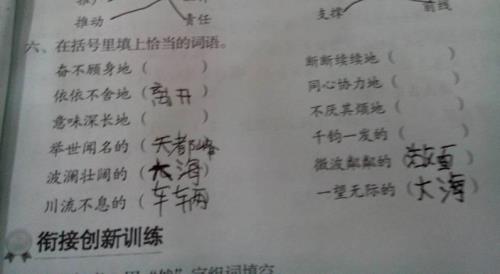 推动 责任 支撑 前线
六、在括号里填上恰当的词语。
奋不顾身地（ ） 断断续续地（ ）
依依不舍地（离开） 同心协力地（ ）
意味深长地（ ） 不厌其烦地（ ）
举世闻名的（天都峰） 千钧一发的（ ）
波澜壮阔的（大海） 微波粼粼的（ ）
川流不息的（车辆） 一望无际的（大海）
衔接创新训练
字组词填空